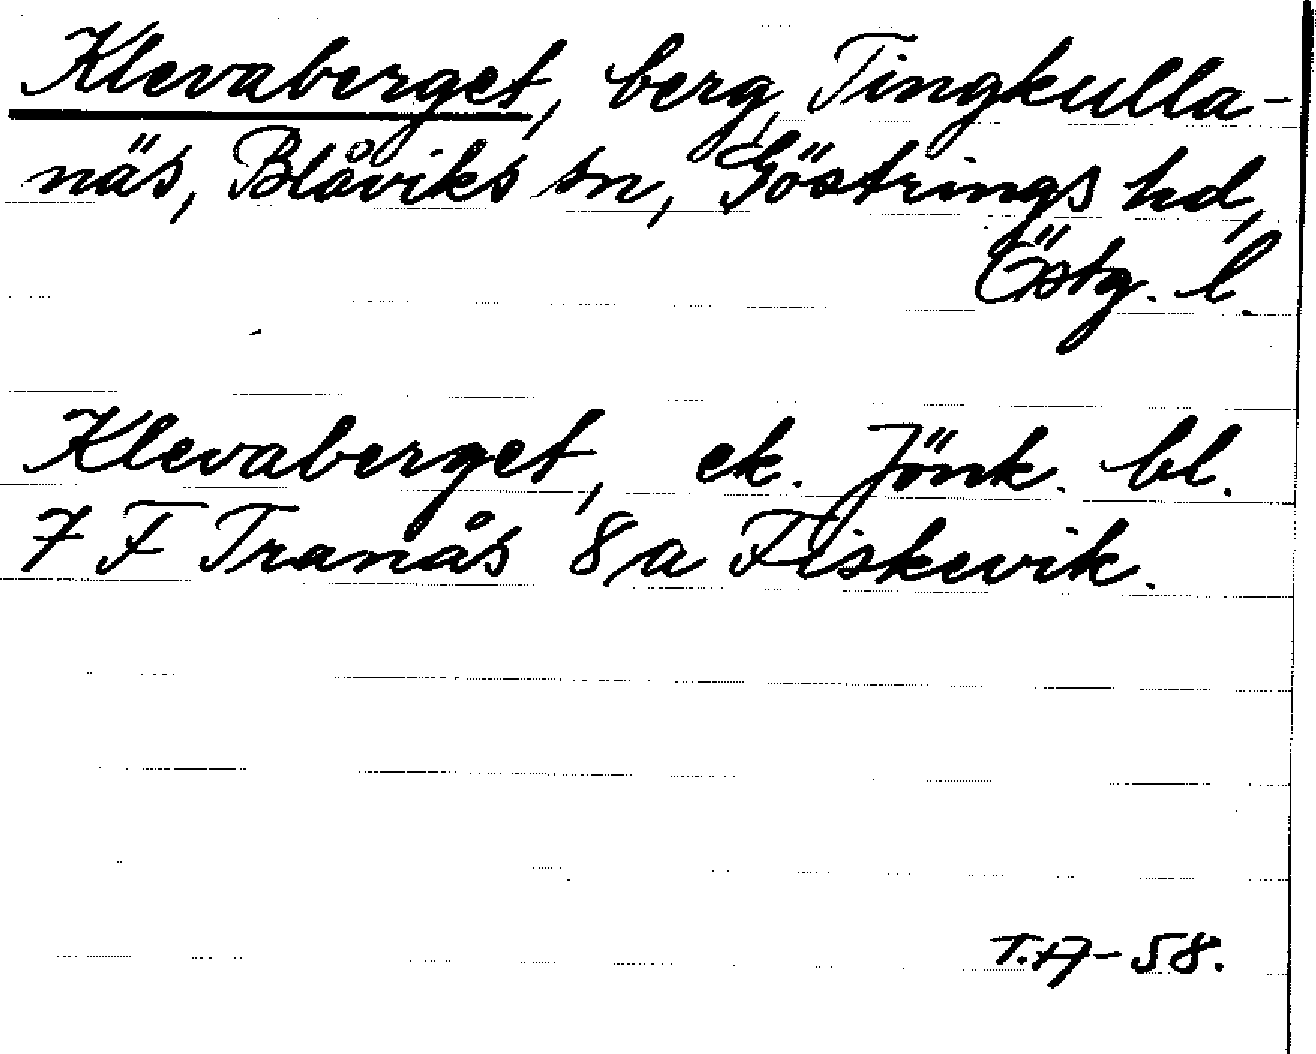 Klevaberget, berg, Tingkulla-
näs, Blåviks sn, Göstrings hd,
Östg. l.
Klevaberget, ek. Jönk. bl.
7 F Tranås 8/a Fiskevik.
T.A-58.